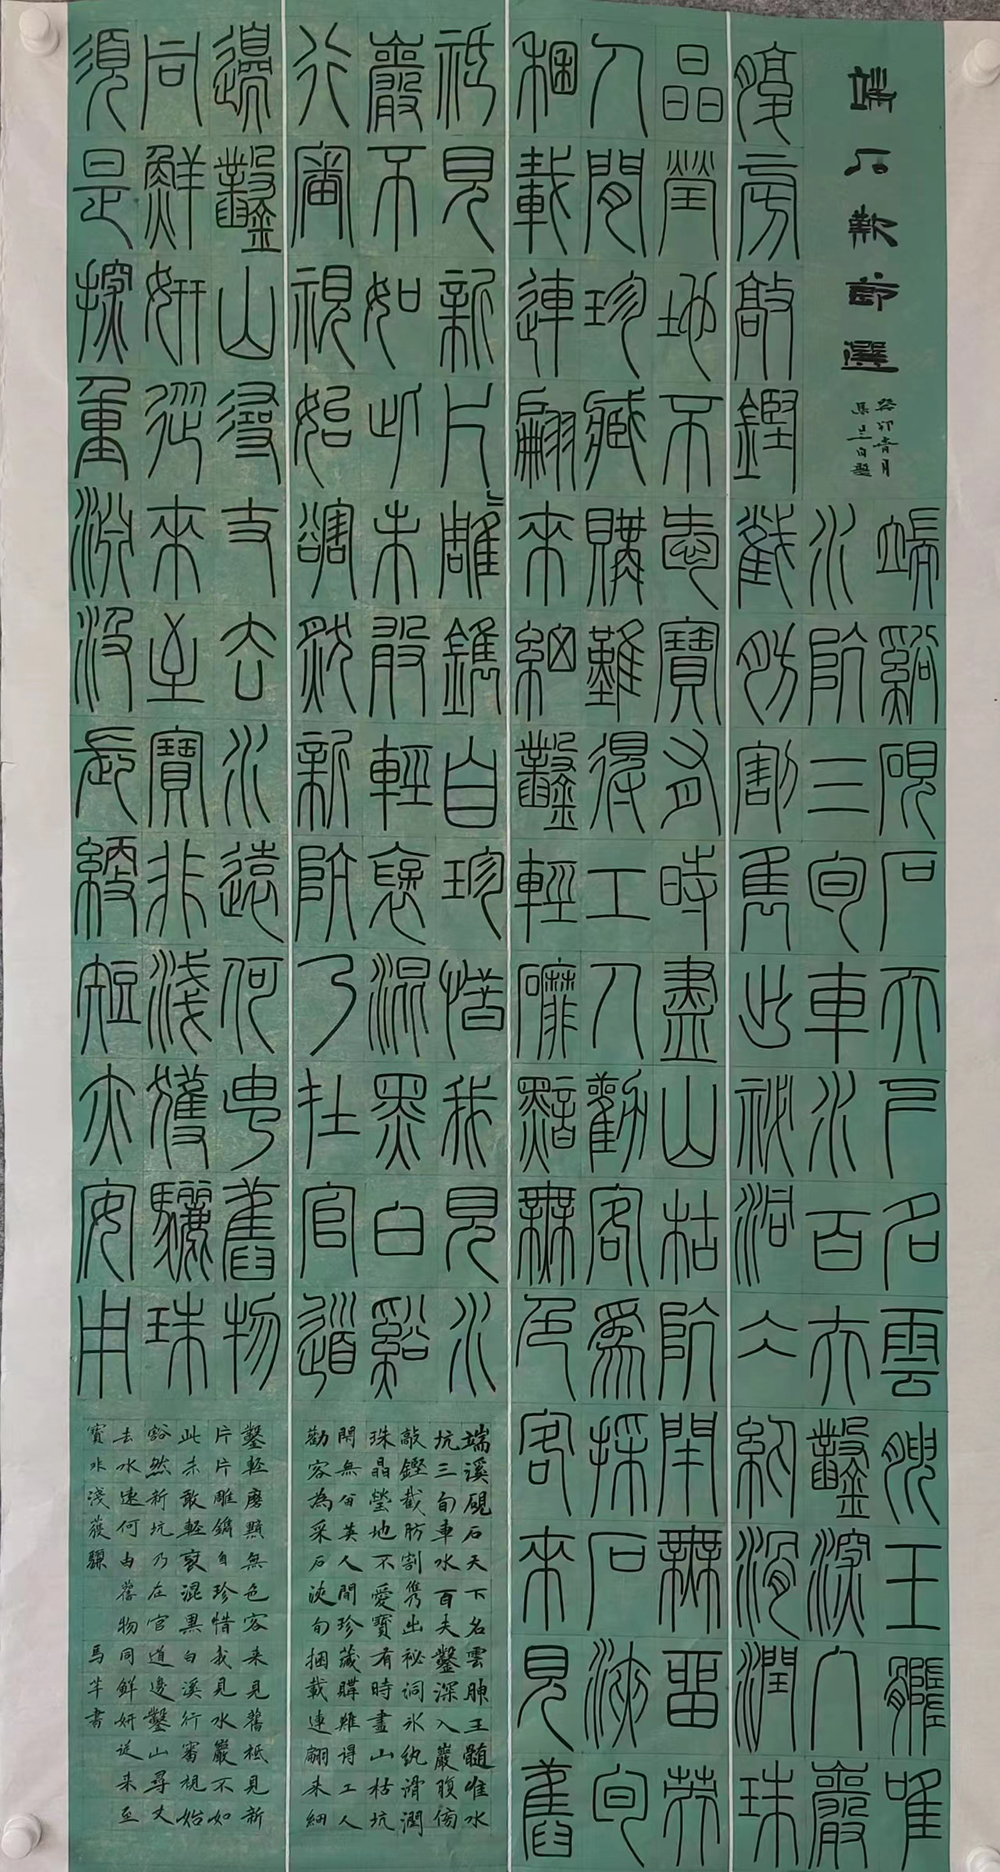 端石歎節選
癸卯青月
端谿硯石天下名雲腴玉髓唯
水阬三旬車水百夫鑿深入巖
腹旁敲鏗截肪割雋出祕洞仌紈滑潤珠
晶瑩地不愛寶有時盡山枯阬閉無留英
人間珍藏購難得工人勸客為採石浹旬
稛載連翩來細鑿輕礦黷無色客來見舊
衹見新片=雕鐫自珍惜我見水
巖不如此未敢輕裒混黑白谿
行審視始豁然新阬乃在官道
邊鑿山尋丈去水遠何由舊物
同鮮妍從來至寶非淺獲驪珠
須是探重淵汲長綆短夫安用
端溪硯石天下名雲腴玉髓唯水
坑三旬車水百夫鑿深入巖腹傍
敲鏗截肪割雋出祕洞氷紈滑潤
珠晶瑩地不愛寶有時盡山枯坑
閉無留英人間珍藏購難得工人
勸客為采石浹旬捆載連翩來細
鑿輕磨黷無色客来見舊祗見新
片片雕鐫自珍惜我見水巖不如
此未敢輕裒混異白溪行審視始
豁然新坑乃在官道邊鑿山尋丈
去水遠何由舊物同鮮妍從来至
寶非淺獲驪 馬半書